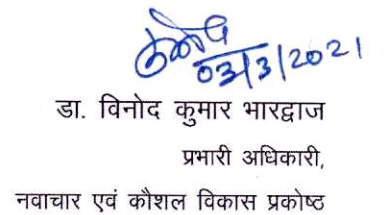 03/3/2021
डा. विनोद कुमार भारद्वाज
प्रभारी अधिकारी,
नवाचार एवं कौशल विकास प्रकोष्ठ